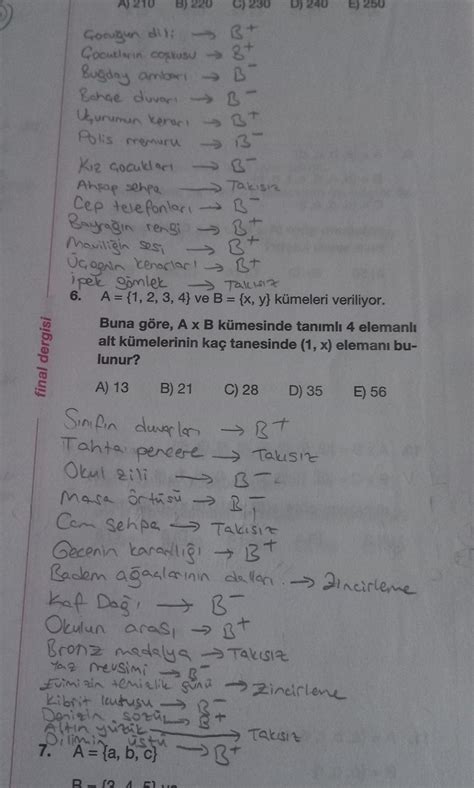 A) 210 B) 220 C) 230 D) 240 E) 250
Çocuğun dili → B+
Çocukların coşkusu → B+
Buğday ambarı → B-
Bahçe duvarı → B-
Uçurumun kenarı → B+
Polis memuru → B-
Kız çocukları → B-
Ahşap sehpa → Takısız
Cep telefonları → B-
Bayrağın rengi → B+
Maviliğin sesi → B+
Üçgenin kenarları → B+
ipek gömlek → Takısız
6. A = {1, 2, 3, 4} ve B = {x, y} kümeleri veriliyor.
Buna göre, A x B kümesinde tanımlı 4 elemanlı
alt kümelerinin kaç tanesinde (1, x) elemanı bu-
lunur?
final dergisi
A) 13 B) 21 C) 28 D) 35 E) 56
Sınıfın duvarları → B+
Tahta pencere → Takısız
Okul zili → B-
Masa örtüsü → B-
Cam sehpa → Takısız
Gecenin karanlığı → B+
Badem ağaçlarının dalları → Zincirleme
Kaf Dağı → B-
Okulun arası → B+
Bronz madalya → Takısız
Yaz mevsimi → B-
Evimizin temizlik günü → Zincirleme
Kibrit kutusu → B-
Denizin sözü → B+
Altın yüzük → Takısız
Dilimin üstü → B+
7. A = {a, b, c}
B = {3, 4, 5} ve